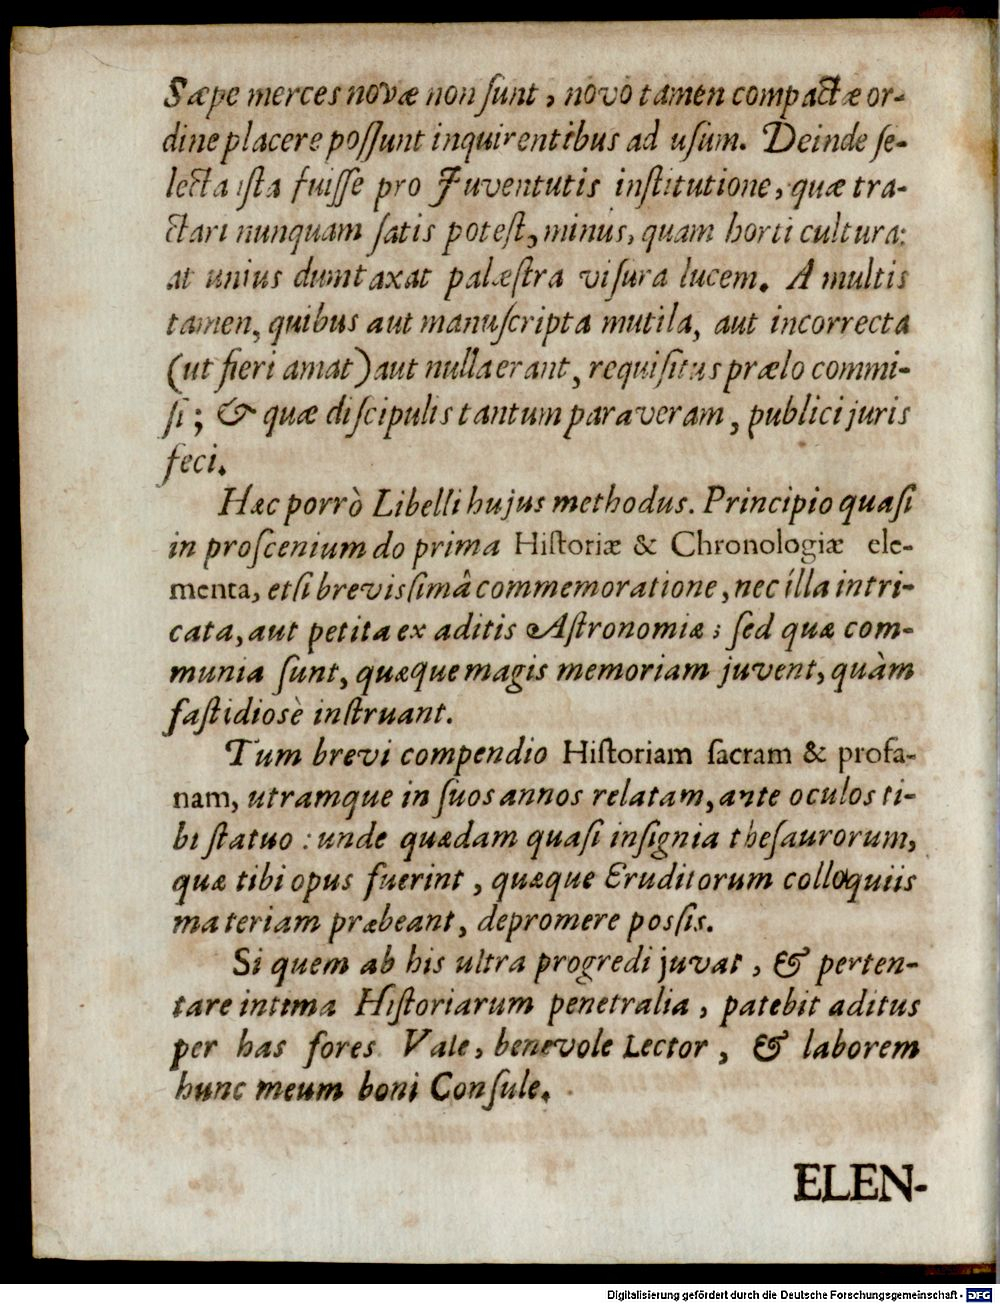 Sæpe merces novæ non ſunt, novo tamen compactæ or-
dine placere poſſunt inquirentibus ad uſum. Deinde ſe-
lecta iſta fuiſſe pro Juventutis inſtitutione, quæ tra-
ctari nunquam ſatis poteſt, minus, quam horti cultura:
at unius dumtaxat palæſtra viſura lucem. A multis
tamen, quibus aut manuſcripta mutila, aut incorrecta
(ut fieri amat) aut nulla erant, requiſitus prælo commi-
ſi; & quæ diſcipulis tantum paraveram, publici juris
feci.
Hæc porrò Libelli hujus methodus. Principio quaſi
in proſcenium do prima Hiſtoriæ & Chronologiæ ele-
menta, etſi breviſſimâ commemoratione, nec illa intri-
cata, aut petita ex aditis Aſtronomiæ; ſed quæ com-
munia ſunt, quæque magis memoriam juvent, quàm
faſtidiosè inſtruant.
Tum brevi compendio Hiſtoriam ſacram & profa-
nam, utramque in ſuos annos relatam, ante oculos ti-
bi ſtatuo: unde quædam quaſi inſignia theſaurorum,
quæ tibi opus fuerint, quæque Eruditorum colloquiis
materiam præbeant, depromere poſſis.
Si quem ab his ultra progredi juvat, & perten-
tare intima Hiſtoriarum penetralia, patebit aditus
per has fores. Vale, benevole Lector, & laborem
hunc meum boni Conſule.
ELEN-
Digitalisierung gefördert durch die Deutsche Forschungsgemeinschaft - DFG